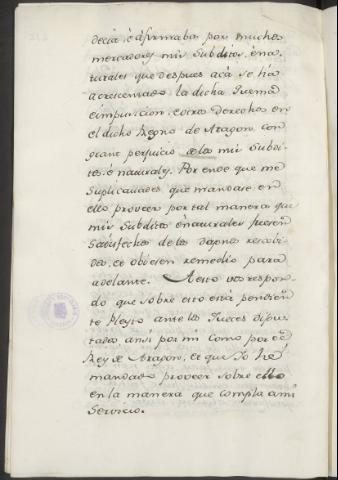 decia, é afirmaba por muchos
mercaderes mis subditos, é na-
turales que despues acá se há
acrecentado la dicha Quema
é imposicion, é otros derechos en
el dicho Regno de Aragon con
grant perjuicio de los mis subdi-
tos, é naturales. Por ende que me
suplicavades que mandase en
ello proveer por tal manera que
mis subditos é naturales fuesen
satisfechos de los dapnos recebi-
dos, et obiesen remedio para
adelante. A esto vos respon-
do que sobre esto está pendien-
te Pleyto ante los Jueces dipu-
tados ansi por mi como por el
Rey de Aragon, et que Yo hé
mandado proveer sobre ello
en la manera que compla á mi
Servicio.